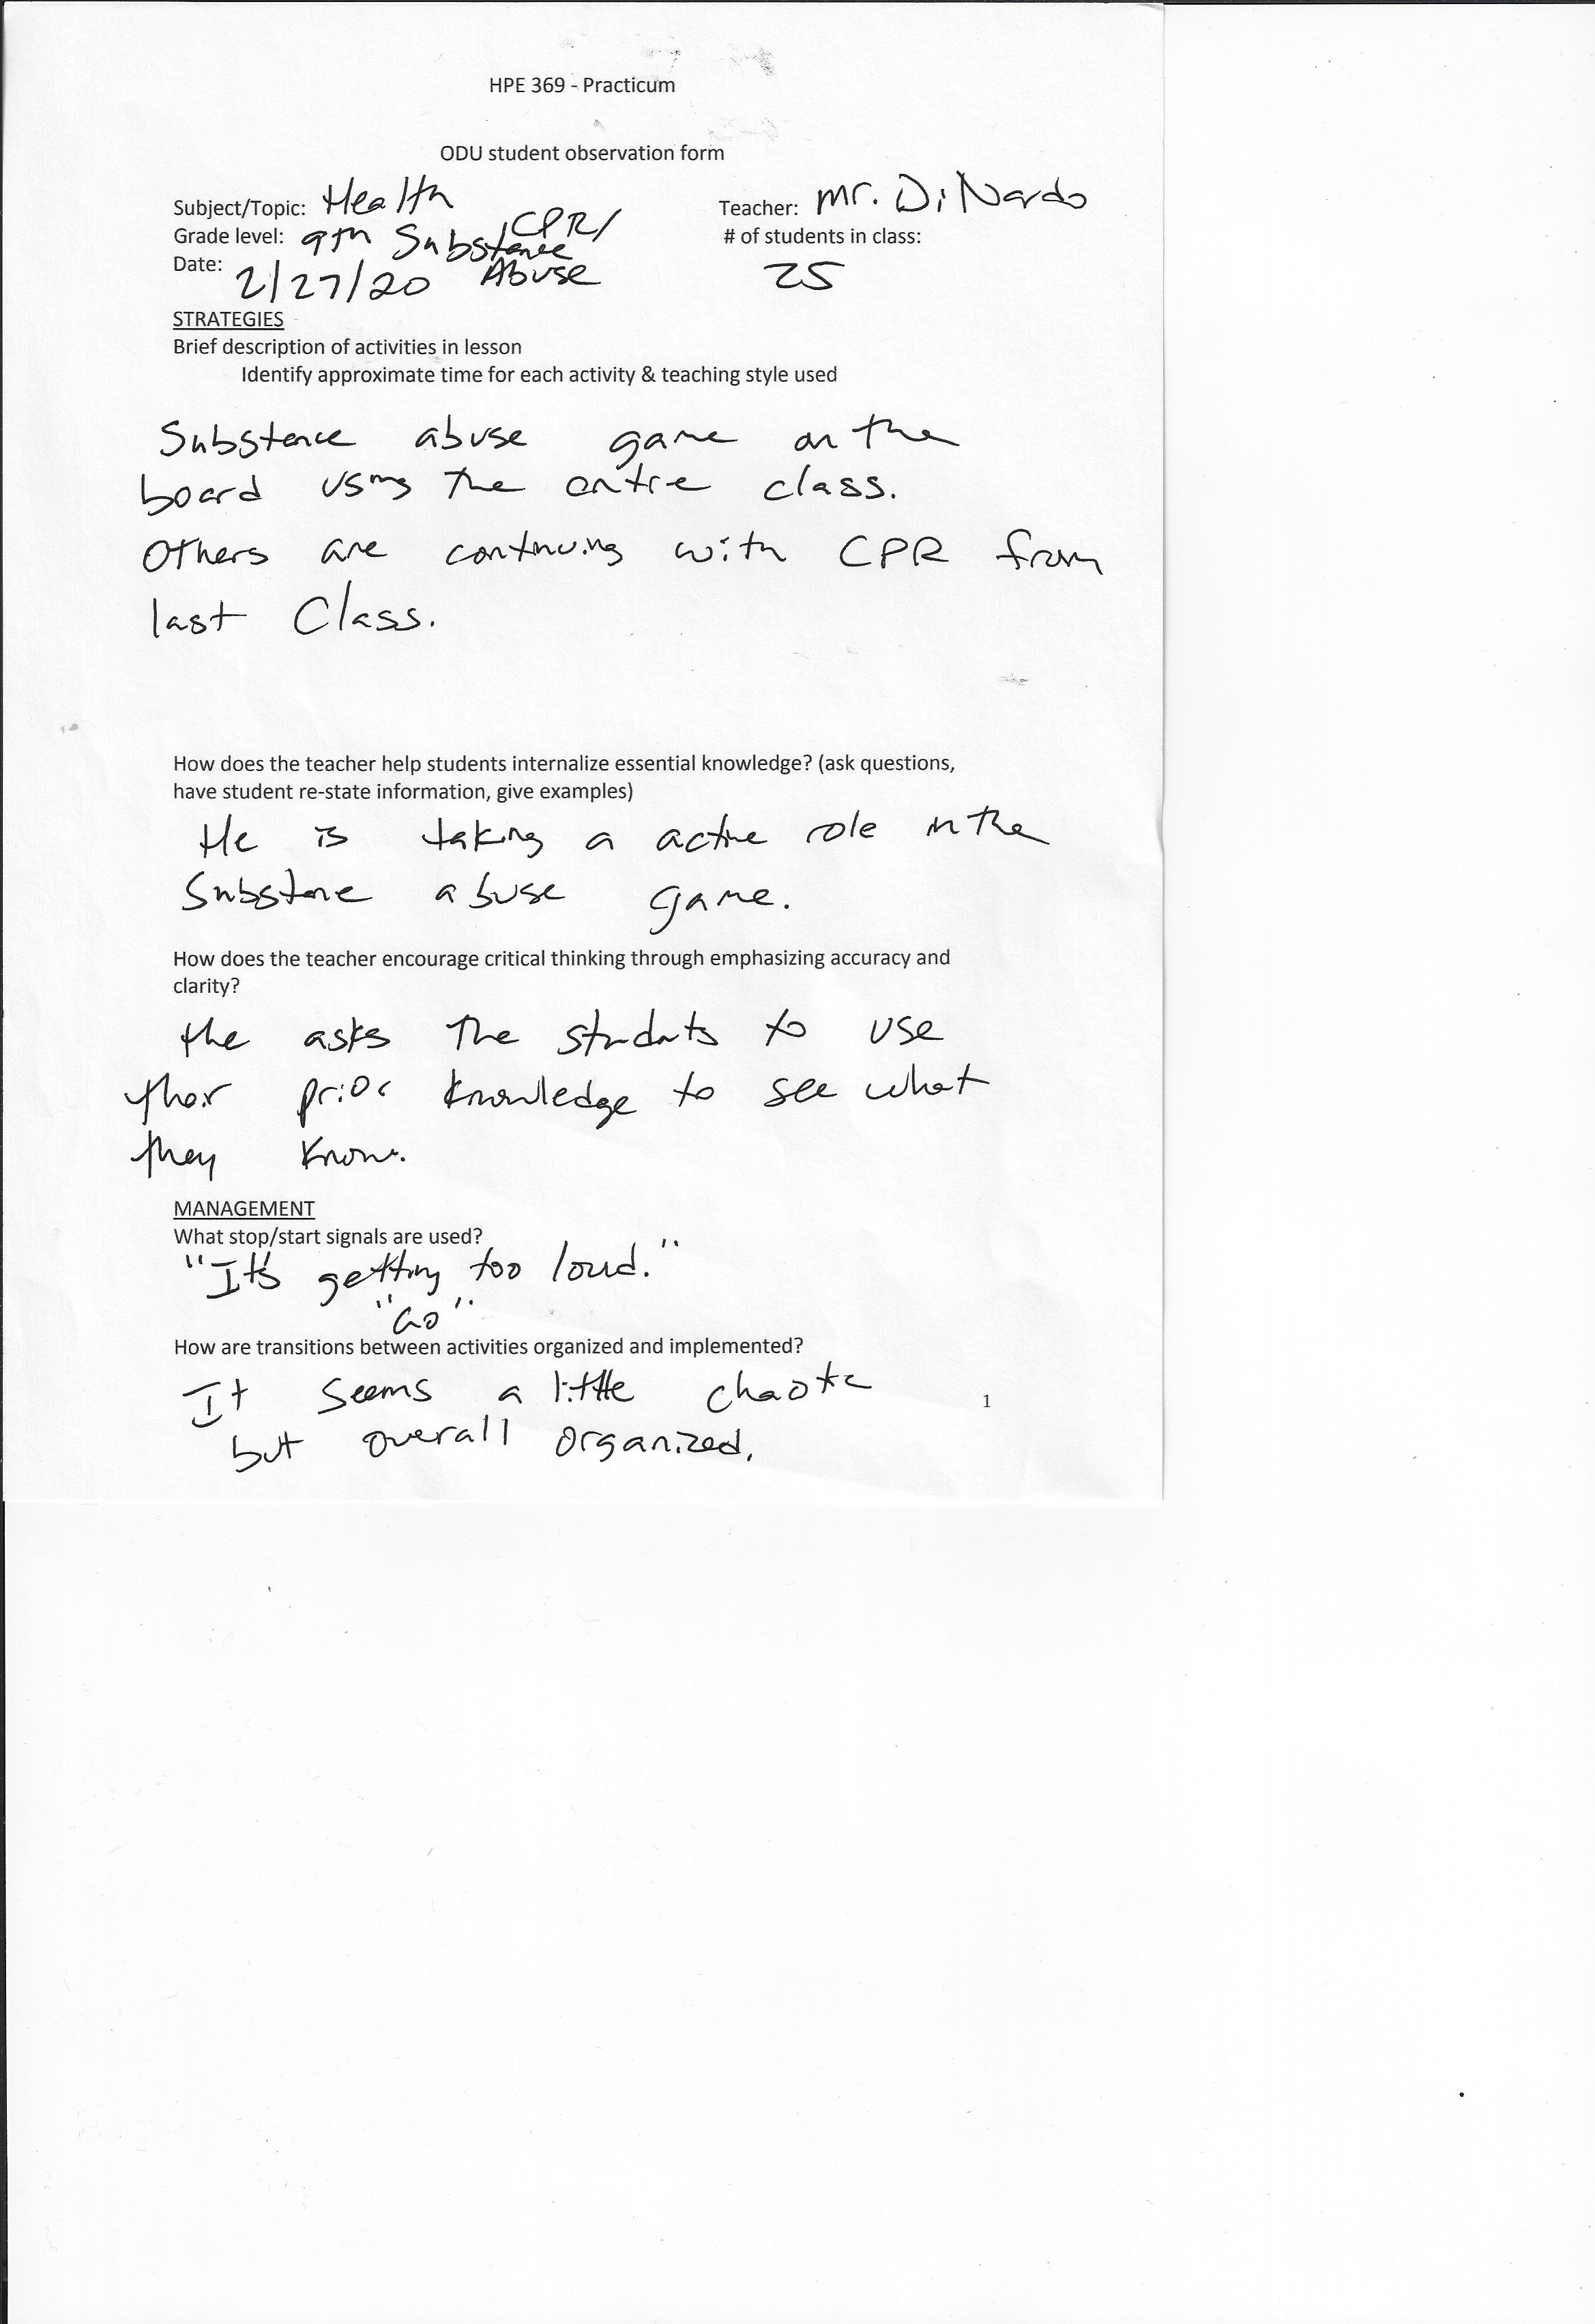 HPE 369 - Practicum
ODU student observation form
Subject/Topic: Health
Teacher: Mr. DiNardo
Grade level: 9th Substance CPR/
# of students in class:
Date: 2/27/20 Abuse
25
STRATEGIES
Brief description of activities in lesson
Identify approximate time for each activity & teaching style used
Substance abuse game on the
board using the entire class.
Others are continuing with CPR from
last Class.
How does the teacher help students internalize essential knowledge? (ask questions,
have student re-state information, give examples)
He is taking a active role in the
Substance abuse game.
How does the teacher encourage critical thinking through emphasizing accuracy and
clarity?
He asks the students to use
their prior knowledge to see what
they know.
MANAGEMENT
What stop/start signals are used?
"It's getting too loud."
"Go"
How are transitions between activities organized and implemented?
It seems a little chaotic
1
but overall organized.